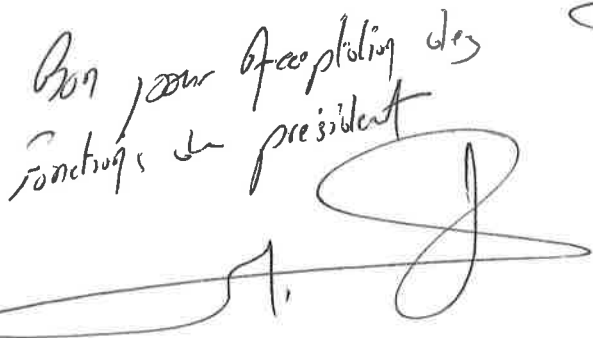 Bon pour Acceptation des
fonctions de président